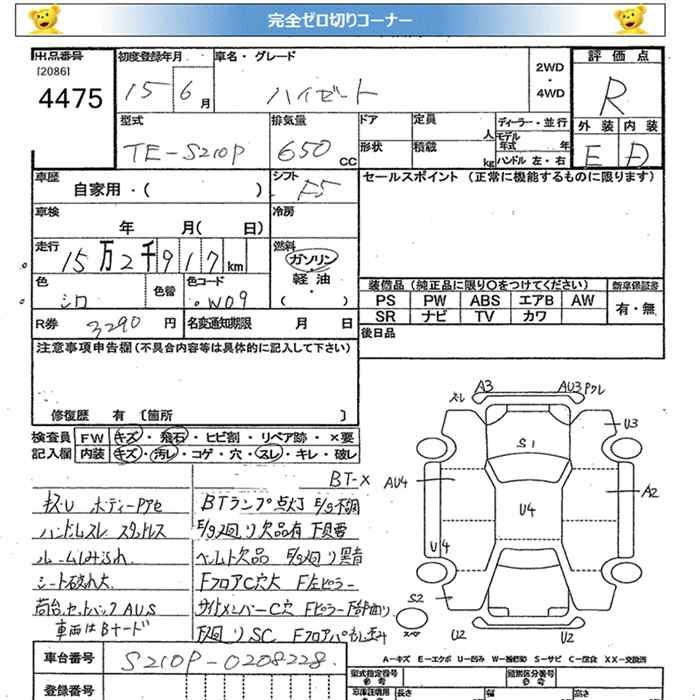 完全ゼロ切りコーナー
出品番号 初度登録年月 車名・グレード 2WD ・ 4WD 評価点
[2086]
4475 15 6月 ハイゼット R
型式 排気量 ドア 定員 人 ディーラー・並行 外装 内装
TE-S210P 650 CC 形状 積載 kg モデル年式 年 ハンドル 左・右 E D
車歴 自家用・( ) シフト F5 セールスポイント (正常に機能するものに限ります)
車検 年 月( 日) 冷房
走行 15万2千917km 燃料 ガソリン・軽油・( )
色 シロ 色替 色コード W09 装備品 (純正品に限り○をつけてください) 新車保証書
PS PW ABS エアB AW 有・無
SR ナビ TV カワ
R券 3290円 名変通知期限 月 日 後日品
注意事項申告欄 (不具合内容等は具体的に記入して下さい)
修復歴 有 〔箇所 〕
検査員 FW キズ・飛石・ヒビ割・リペア跡・×要
記入欄 内装 キズ・汚レ・コゲ・穴・スレ・キレ・破レ
BT-X
キズ・U ボディーPアセ
ハンドルスレ スタッドレス
ルームしみ汚れ
シート破れ大
荷台、セットバックAUS
車両はBナード
BTランプ点灯 E/g不調
E/g廻り欠品有 下見要
ベルト欠品 E/g廻り異音
FフロアC穴大 F左ピラー
サイドメンバーC穴 Fピラー下部曲り
下廻りSC Fフロアパネル歪み
A3 AU3 Pクレ
スレ
U3
S1
AU4 A2
U4
U4
S2
スペア
U2 U2
車台番号 S210P-0208228
A-キズ E-エクボ U-凹み W-補修跡 S-サビ C-腐食 XX-交換済
登録番号 型式指定番号 参考 類別区分番号 参考
車庫証明用 参考 長さ 幅 高さ